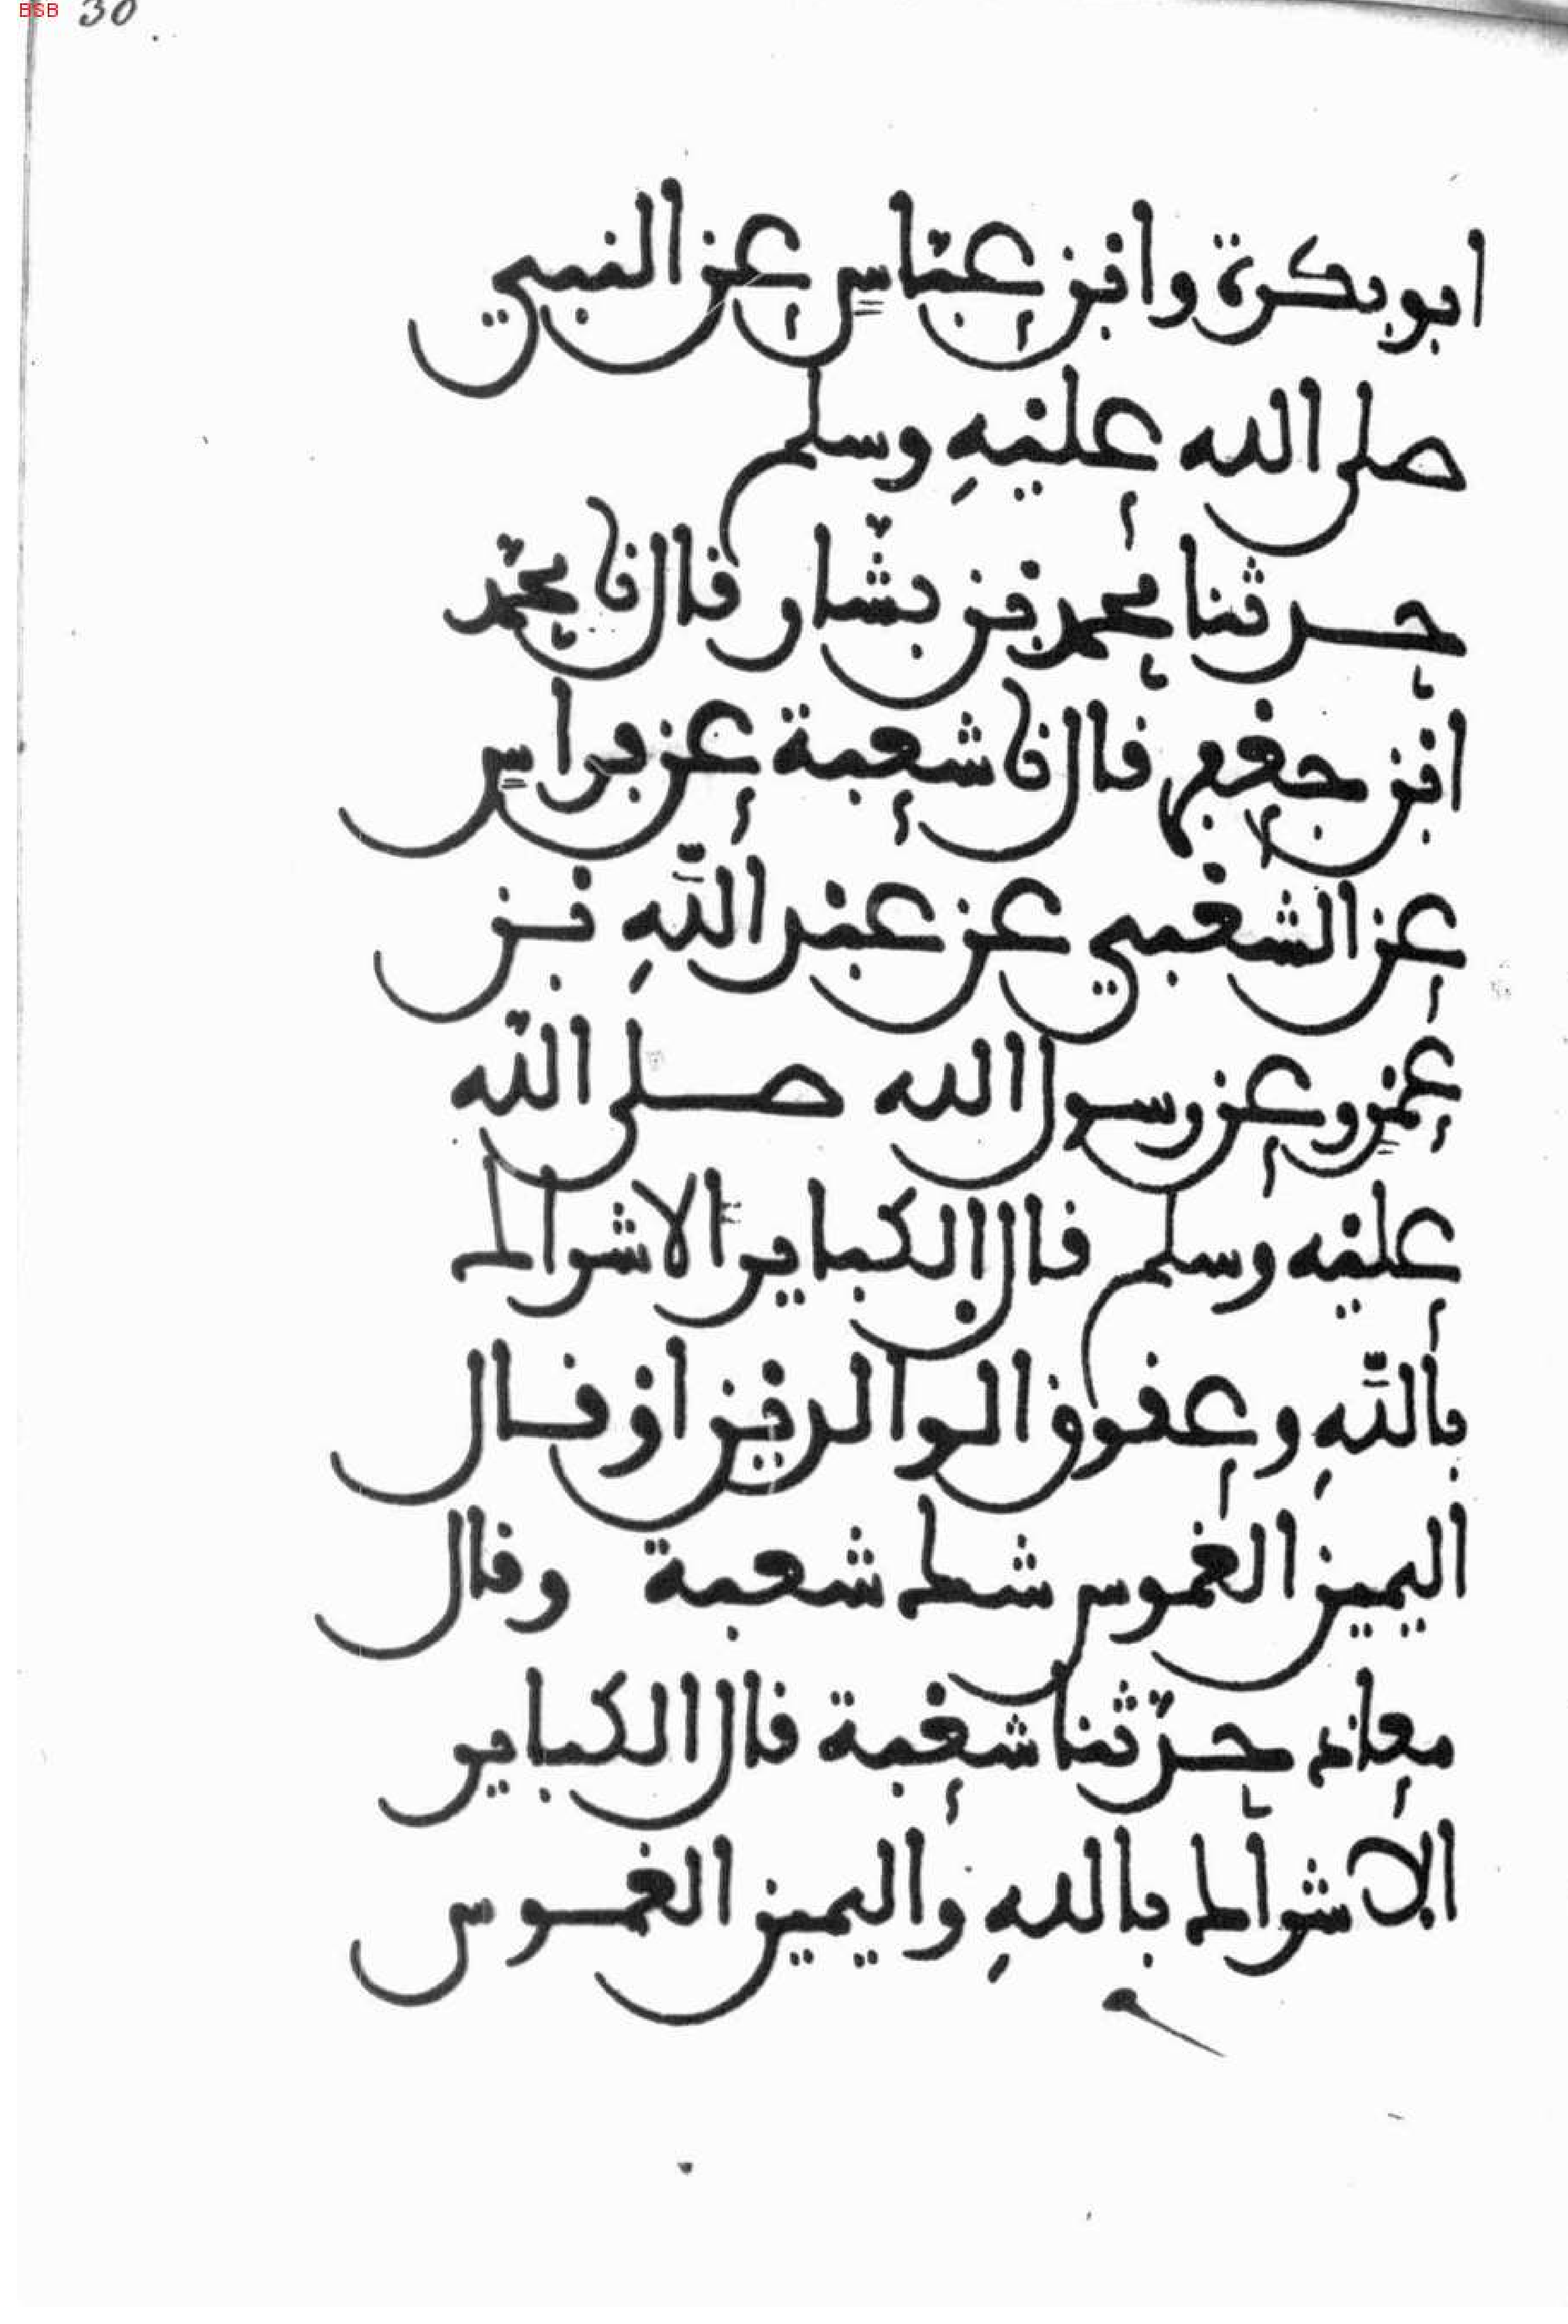 BSB 30
ابو بكرة وابن عباس عن النبي
صلى الله عليه وسلم
حدثنا محمد بن بشار قال نا محمد
ابن جعفر قال نا شعبة عن فراس
عن الشعبي عن عبد الله بن
عمرو عن رسول الله صلى الله
عليه وسلم قال الكباير الاشراك
بالله وعقوق الوالدين او قال
اليمين الغموس شك شعبة وقال
معاذ حدثنا شعبة قال الكباير
الاشراك بالله واليمين الغموس